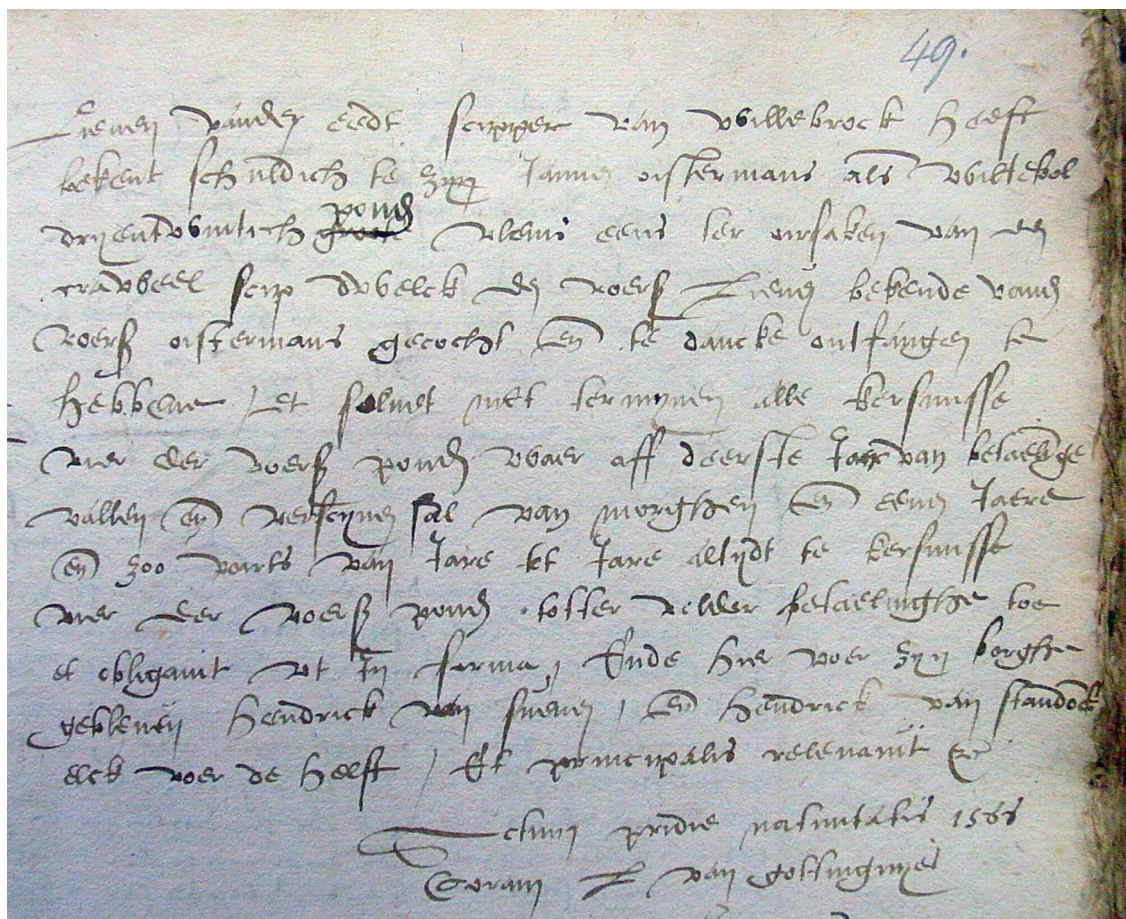 49.
Lieven vander eedt scipper van willebrock heeft
bekent schuldich te zyn Jannen oistermans als
dryentwintich groote pond vlems eens ter oirsaken van den
scip dwelck den voers Lieven bekende vanden
voers oistermans gecocht en te dancke ontfangen te
hebbene / et solvet met termynen alle kersmisse
vier der voers ponden waer aff deerste Jaer van betaelinge
vallen en verscynen sal van morghen en eenen Jaere
en zoo voirts van Jare tot Jare altydt te kersmisse
vier der voers ponden totter volder betaelinghe toe
et obligavit ut In forma, Ende hier voer zyn borghe
gebleven Hendrick van / en Hendrick van
elck voer de helft / Et principalis relevavit &c
Actum pridie nativitatis 1566
Coram L van